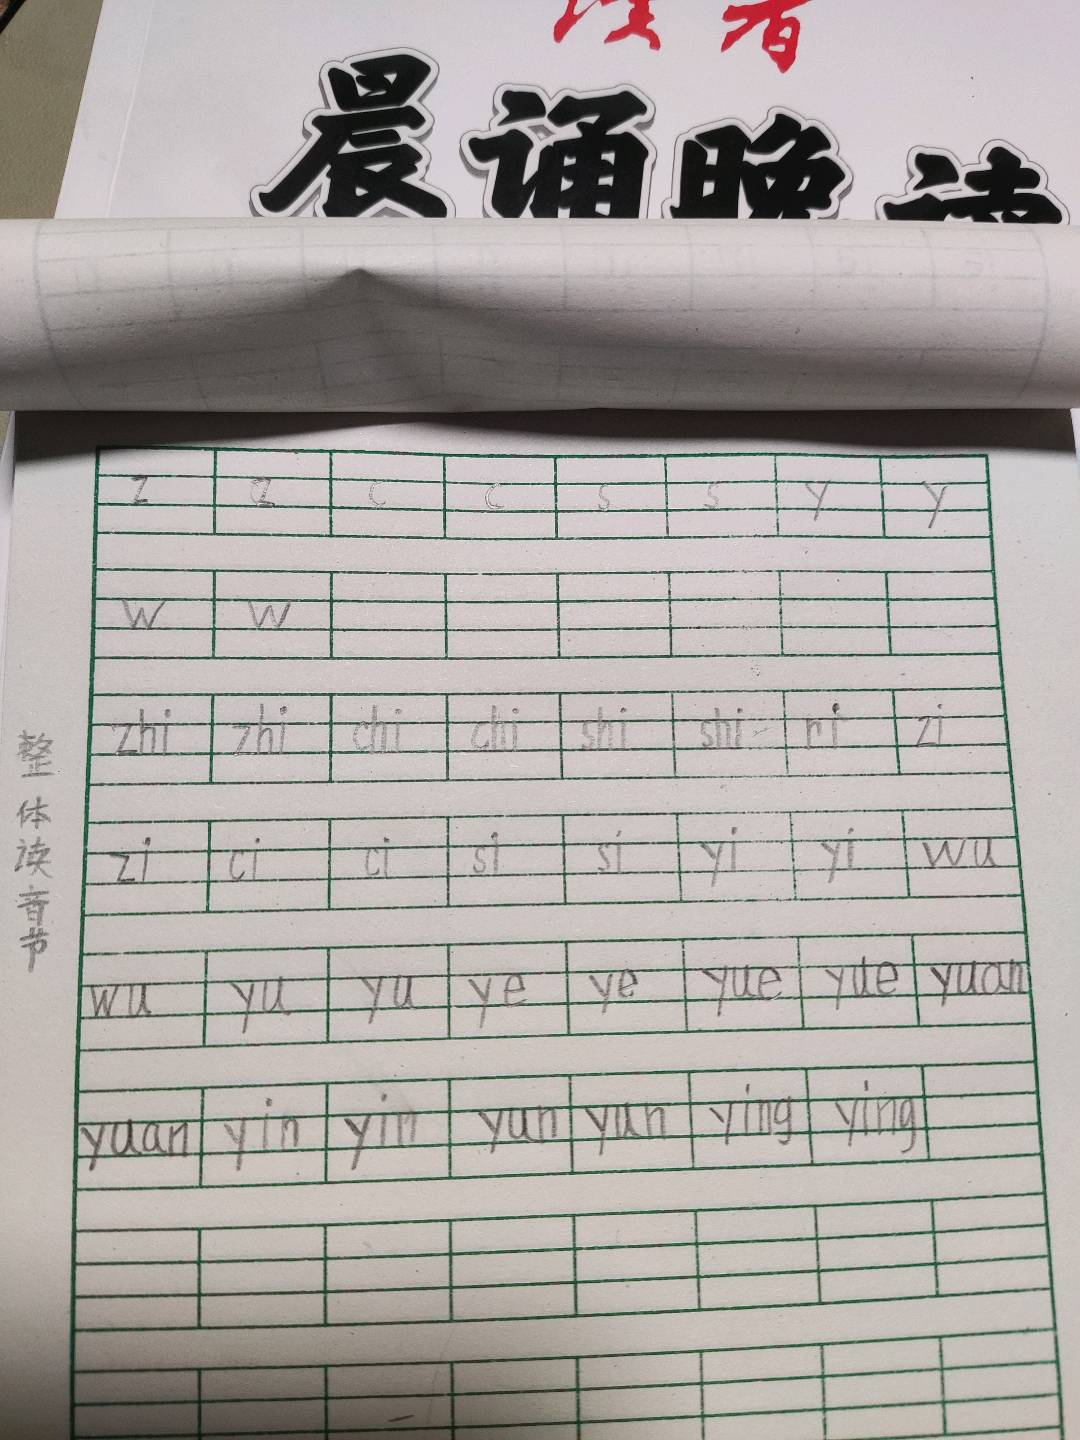 读者
晨诵晚读
z z c c s s y y
w w
zhi zhi chi chi shi shi ri zi
zi ci ci si si yi yi wu
wu yu yu ye ye yue yue yuan
yuan yin yin yun yun ying ying
整体读音节